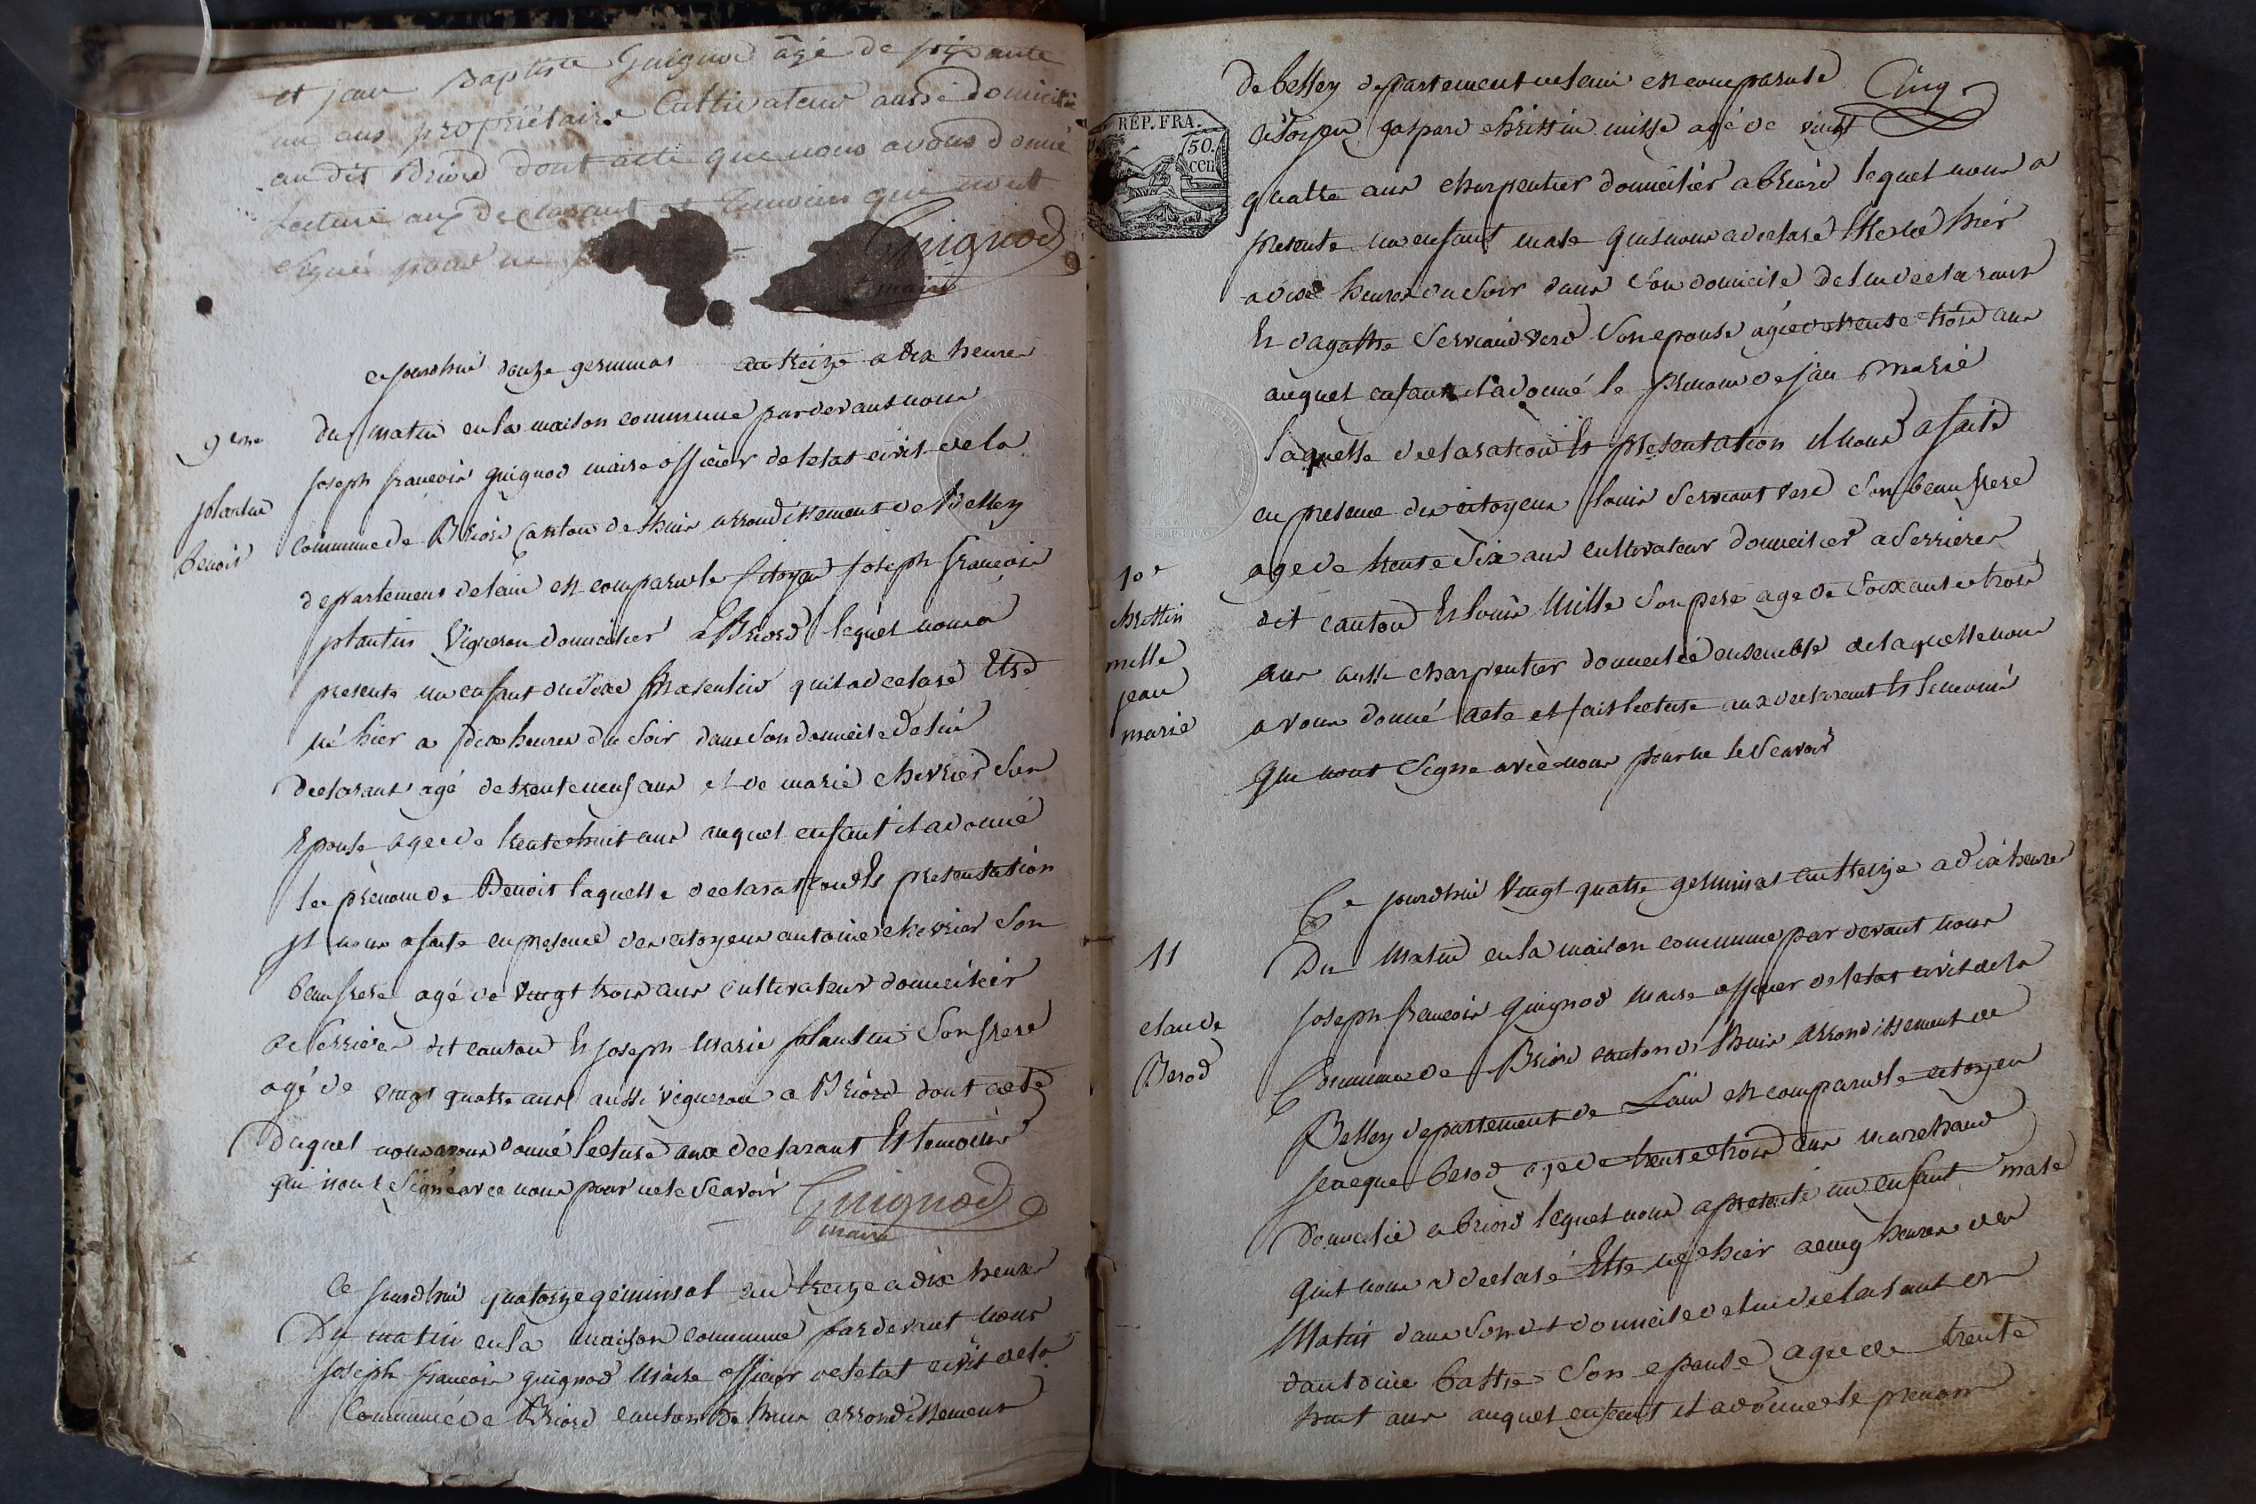 et jean Baptiste Guignod âgé de soixante
un ans propriétaire Cultivateur aussi domicilié
au dit Briord dont acte que nous avons donné
lecture aux declarant et temoins qui nont
signé pour ne
Guignod
maire
ce jourdhui douze germinal an treize a dix heures
9eme
du matin en la maison commune pardevant nous
joseph françois guignod maire officier de letat civil de la
plantin
commune de Briord canton de lhuis arrondissement de Belley
benoit
departement de lain est comparu le Citoyen joseph françois
plantin vigneron domicilier a Briord lequel nous a
presente un enfant du sexe masculin quil a declaré Etre
né hier a dix heures du soir dans son domicile de lui
declarant agé de trente neuf ans et de marie chevrier son
Epouse agee de trente huit ans auquel enfant il a donné
le prenom de Benoit laquelle declaration Et presentation
il nous a faite en presence des citoyens antoine chevrier son
beau frere agé de vingt trois ans cultivateur domicilier
a Serrieres dit canton Et joseph marie plantin son frere
agé de vingt quatre ans aussi vigneron a Briord dont acte
duquel nous avons donné lecture aux declarant Et temoins
qui nont Signé avec nous pour ne le Scavoir
Guignod
maire
Ce jourdhui quatorze geminal an treize a dix heures
Du matin en la maison commune pardevant nous
joseph françois guignod Maire officier de letat civil de la
Commune de Briord canton de lhuis arrondissement
de belley departement de lain est comparu le
Cinq
RÉP. FRA.
50.
cen
citoyen gaspard chrittin mille agé de vingt
quatre ans charpentier domicilier a briord lequel nous a
presente un enfant male quil nous a declaré Etre né hier
a dix heures du soir dans son domicile de lui declarant
Et dagathe servant verd son epouse agée de trente trois ans
auquel enfant il a donné le prenom de jean marie
laquelle declaration Et presentation il nous a faite
en presence des citoyens louis servant verd son beau frere
age de trente six ans cultivateur domicilier a Serrieres
10e
dit canton Et louis Mille son pere age de soixante trois
chrittin
mille
ans aussi charpentier domicilié ensemble de laquelle nous
jean
avons donné acte et fait lecture aux declarant Et temoins
marie
qui nont signe avec nous pour ne le scavoir
Ce jourdhui vingt quatre germinal an treize a dix heures
11
Du matin en la maison commune par devant nous
joseph françois guignod maire officier de letat civil de la
claude
Commune de Briord canton de lhuis arrondissement de
Berod
Belley departement de Lain est comparu le citoyen
jacque berod age de trente trois ans marchand
domicilié a briord lequel nous a presenté un enfant male
quil nous a declaré Etre né hier a cinq heures du
Matin dans son dit domicile de lui declarant et
dantoine battie son epouse agee de trente
huit ans auquel enfant il a donné le prenom